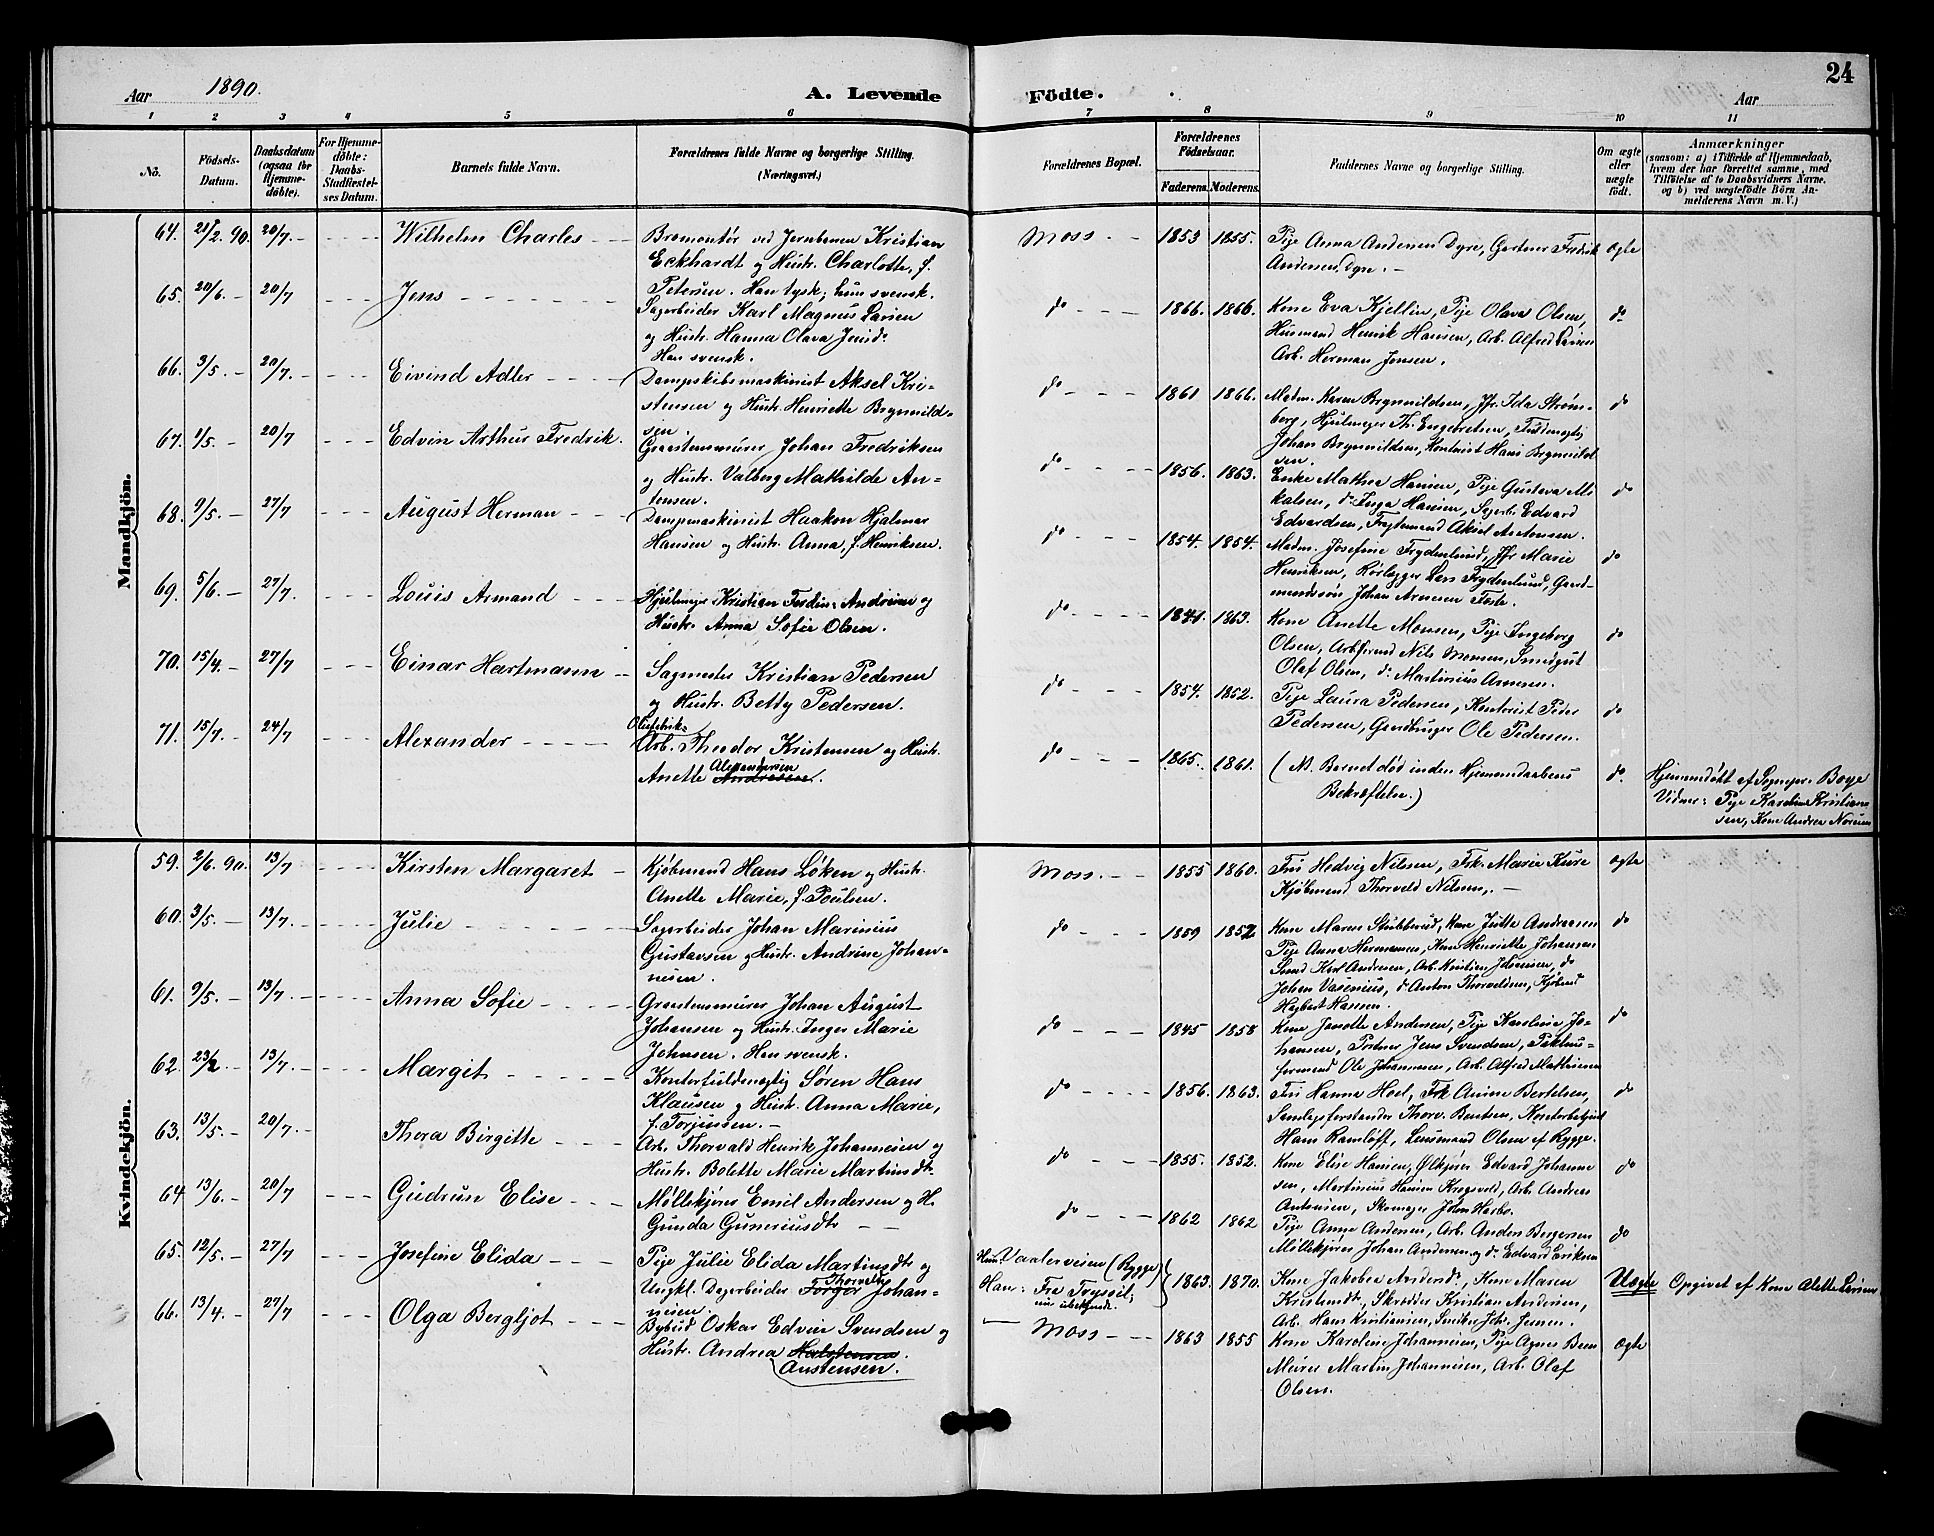 24
Aar 1890. A. Levende Födte. Aar
1 2 3 4 5 6 7 8 9 10 11
No.
Födsels-Datum.
Daabsdatum (ogsaa for Hjemme-döbte).
For Hjemme-döbte: Daabs-Stadfæstelses Datum.
Barnets fulde Navn.
Forældrenes fulde Navne og borgerlige Stilling.
(Næringsvei.)
Forældrenes Bopæl.
Forældrenes Födselsaar.
Faderens. Moderens.
Faddernes Navne og borgerlige Stilling.
Om ægte eller uægte født.
Anmærkninger
(saasom: a) i Tilfælde af Hjemmedaab,
hvem der har forrettet samme, med
Tilföielse af to Daabsvidners Navne,
og b) ved uægtefödte Börn An-
melderens Navn m. V.)
Mandkjön.
64. 21/2 90. 20/7 Wilhelm Charles
Bromontör ved Jernbanen Kristian
Eckhardt og Hustr. Charlotte, f.
Petersen. Han tysk; hun svensk.
Moss 1853 1855.
Pige Anna Andersen Dyre, Gartner Fredrik
Andersen Dyre.
ægte
65. 20/6. 20/7 Jens
Sagarbeider Karl Magnus Larsen
og Hustr. Hanna Olava Jensdr.
Han svensk.
do 1866. 1866.
Kone Eva Kjellin, Pige Olava Olsen,
Husmand Henrik Hansen, Arb. Alfred Larsen
Arb. Herman Jensen.
do
66. 3/5. 20/7. Eivind Adler
Dampskibsmaskinist Aksel Kri-
stensen og Hustr. Henriette Brynnild-
sen.
do 1861 1866.
Madm. Karen Brynnildsen, Jfr. Ida Strøm-
berg, Hjulmager Th. Engebretsen, Fuldmægtig
Johan Brynnildsen, Kontorist Hans Brynnild-
sen.
do
67. 1/5. 20/7 Edvin Arthur Fredrik.
Graastensmurer Johan Fredriksen
og Hustr. Valborg Mathilde An-
tensen.
do 1856. 1863.
Enke Mathea Hansen, Pige Gustava Mi-
kalsen, do Inga Hansen, Sagarb. Edvard
Edvardsen, Aksel Antonsen.
do
68. 9/5. 27/7 August Herman
Dampmaskinist Haakon Hjalmar
Hansen og Hustr. Anna, f. Henriksen.
do 1854. 1854.
Madm. Josefine Frydenlund, Jfr Marie
Henriksen, Rørlægger Lars Frydenlund, Gaard-
mandssøn Johan Arnesen Foste.
do
69. 5/6. 27/7. Louis Armand
Hjulmager Kristian Ferdin: Andersen og
Hustr. Anna Sofie Olsen.
do 1841. 1863.
Kone Anette Monsen, Pige Ingeborg
Olsen, Arbformd Nils Monsen, Smedgut
Olaf Olsen, do Martinius Arnesen.
do
70. 15/4. 27/7 Einar Hartmann
Sagmester Kristian Pedersen
og Hustr. Betty Pedersen.
do 1854. 1852.
Pige Laura Pedersen, Kontorist Peder
Pedersen, Gaardbruger Ole Pedersen.
do
71. 15/7. 24/7 Alexander
Arb. Theodor Kristensen og Hustr.
Anette Alexandersen Andresen.
do 1865. 1861.
(NB. Barnet död inden Hjemmedaabens
Bekræftelse.)
do.
Hjemmedöbt af Sognepr. Boye
Vidner: Pige Karoline Kristian-
sen, Kone Andrea Noreen
Kvindekjön.
59. 2/6. 90. 13/7 Kirsten Margaret
Kjöbmand Hans Löken og Hustr.
Anette Marie, f. Poulsen.
Moss. 1855 1860.
Fru Hedvig Nilsen, Frk. Marie Kure
Kjöbmand Thorvald Nilsen,.
ægte
60. 3/5. 13/7. Julie
Sagarbeider Johan Marinius
Gustavsen og Hustr. Andrine Johan-
nesen.
do 1859 1852
Kone Maren Stubberud, Kone Jutte Andreasen
Pige Anna Hermansen, Kone Henriette Johansen
Smed Karl Andresen, Arb. Kristian Johansen, do
Johan Vasenius, do Anton Thorvaldsen, Kjøbmd
Hagbart Hansen.
do
61. 9/5. 13/7. Anna Sofie
Graastensmurer Johan August
Johansen og Hustr. Inger Marie
Johnsen. Han svensk.
do 1845 1858
Kone Janette Andersen, Pige Karoline Jo-
hansen, Portner Jens Svendsen, Pakhus-
formand Ole Johannesen, Arb. Alfred Mathiesen
do
62. 23/2 13/7. Margit
Kontorfuldmægtig Sören Hans
Klausen og Hustr. Anna Marie,
f. Torjussen.
do 1856. 1863.
Fru Hanna Hoel, Frk Anine Bertelsen,
Samlagsforstander Thorv. Bentsen,
Hans Ramlöft, Lensmand Olsen af Rygge.
do
63. 13/5. 20/7. Thora Birgitte
Arb. Thorvald Henrik Johannesen og
Hustr. Bolette Marie Martinsdtr.
do 1855. 1852.
Kone Elise Hansen, Ølkjører Edvard Johanne
sen, Martinius Hansen Krogsvold, Arb. Andreas
Antonsen, Skomager John Harbo.
do
64 13/6. 20/7 Gudrun Elise
Møllekjører Emil Andersen og H.
Gunda Guneriusdtr
do 1862 1862
Pige Anne Andersen, Arb. Anders Bergersen
Møllekjører Johan Andersen og do Edvard Eriksen
do
65. 12/5. 27/7 Josefine Elida
Pige Julie Elida Martinsdtr og
Ungkl. Dagarbeider Thorvald Torger Johan-
nesen.
Hun: Vaalerveien (Rygge)
Han: Fra Trysil,
nu ubekjendt.
1863. 1870.
Kone Jakobea Andersdr, Kone Maren
Kristensdr, Skrædder Kristian Andersen,
Arb. Hans Kristiansen, Snedker Johs. Jensen.
Uægte
Opgivet af Kone Alette Larsen
66. 13/4. 27/7 Olga Bergljot
Bybud Oskar Edvin Svendsen og
Hustr. Andrea Halstensen.
Austensen.
Moss 1863 1855
Kone Karoline Johannesen, Pige Agnes Bern
Murer Martin Johannesen, Arb. Olaf
Olsen.
Ægte